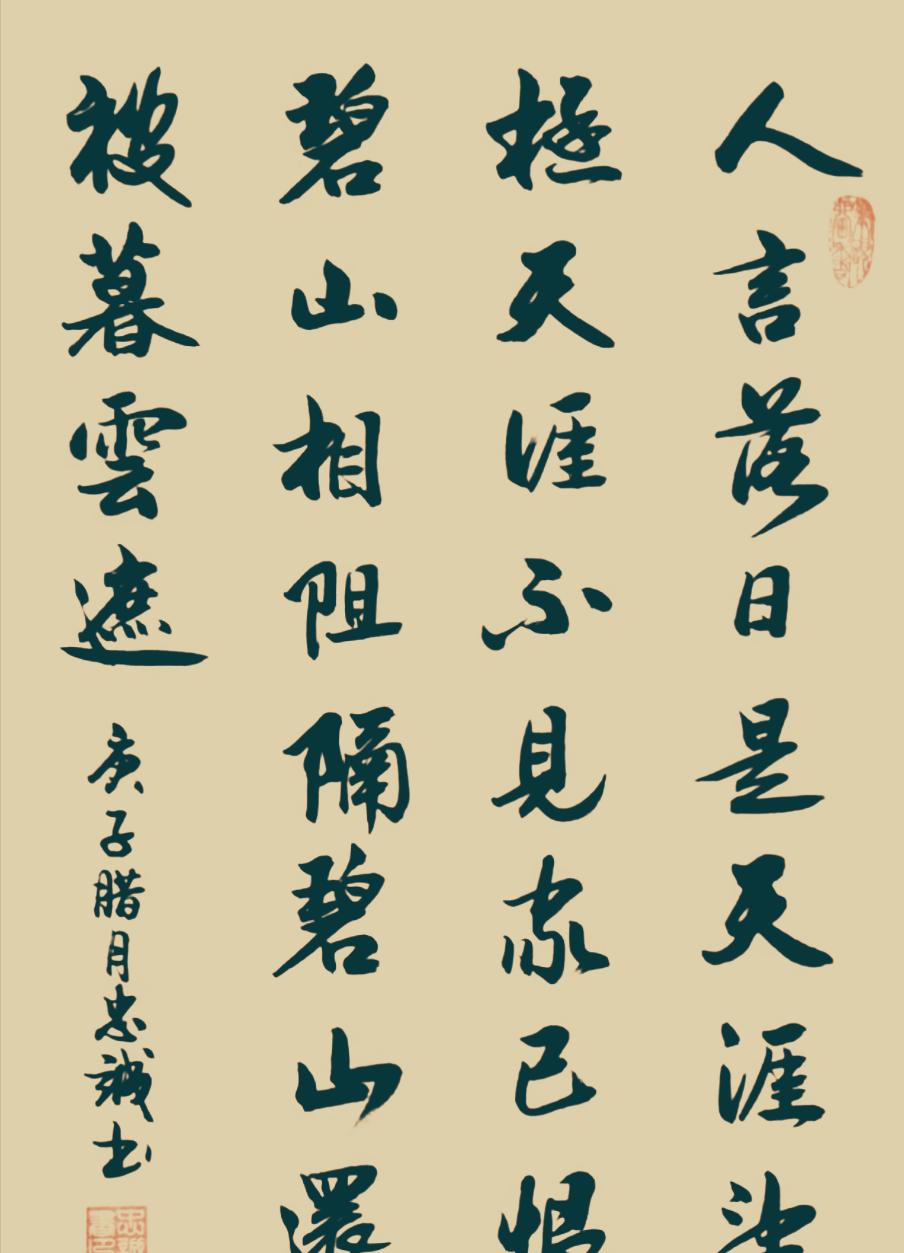 人言落日是天涯望
極天涯不見家已恨
碧山相阻隔碧山還
被暮雲遮
庚子腊月忠誠书